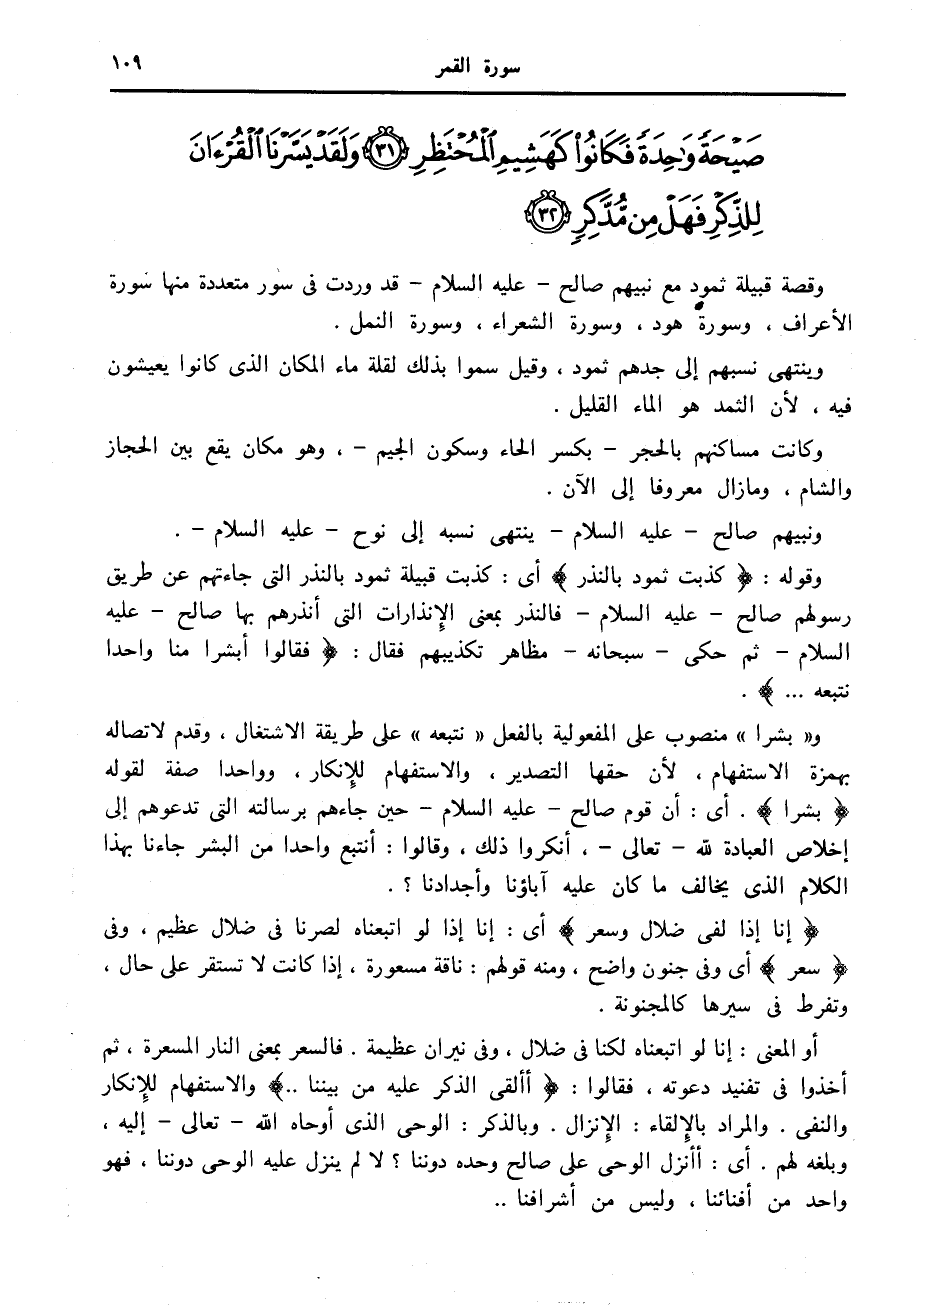 سورة القمر ١٠٩
صَيْحَةً وَٰحِدَةً فَكَانُوا۟ كَهَشِيمِ ٱلْمُحْتَظِرِ ٣١ وَلَقَدْ يَسَّرْنَا ٱلْقُرْءَانَ
لِلذِّكْرِ فَهَلْ مِن مُّدَّكِرٍ ٣٢
وقصة قبيلة ثمود مع نبيهم صالح – عليه السلام – قد وردت فى سور متعددة منها سورة
الأعراف ، وسورة هود ، وسورة الشعراء ، وسورة النمل .
وينتهى نسبهم إلى جدهم ثمود ، وقيل سموا بذلك لقلة ماء المكان الذى كانوا يعيشون
فيه ، لأن الثمد هو الماء القليل .
وكانت مساكنهم بالحجر – بكسر الحاء وسكون الجيم – ، وهو مكان يقع بين الحجاز
والشام ، ومازال معروفا إلى الآن .
ونبيهم صالح – عليه السلام – ينتهى نسبه إلى نوح – عليه السلام – .
وقوله : ﴿ كذبت ثمود بالنذر ﴾ أى : كذبت قبيلة ثمود بالنذر التى جاءتهم عن طريق
رسولهم صالح – عليه السلام – فالنذر بمعنى الإنذارات التى أنذرهم بها صالح – عليه
السلام – ثم حكى – سبحانه – مظاهر تكذيبهم فقال : ﴿ فقالوا أبشرا منا واحدا
نتبعه ... ﴾ .
و« بشرا » منصوب على المفعولية بالفعل « نتبعه » على طريقة الاشتغال ، وقدم لاتصاله
بهمزة الاستفهام ، لأن حقها التصدير ، والاستفهام للإنكار ، وواحدا صفة لقوله
﴿ بشرا ﴾ . أى : أن قوم صالح – عليه السلام – حين جاءهم برسالته التى تدعوهم إلى
إخلاص العبادة لله – تعالى – ، أنكروا ذلك ، وقالوا : أنتبع واحدا من البشر جاءنا بهذا
الكلام الذى يخالف ما كان عليه آباؤنا وأجدادنا ؟ .
﴿ إنا إذا لفى ضلال وسعر ﴾ أى : إنا إذا لو اتبعناه لصرنا فى ضلال عظيم ، وفى
﴿ سعر ﴾ أى وفى جنون واضح ، ومنه قولهم : ناقة مسعورة ، إذا كانت لا تستقر على حال ،
وتفرط فى سيرها كالمجنونة .
أو المعنى : إنا لو اتبعناه لكنا فى ضلال ، وفى نيران عظيمة . فالسعر بمعنى النار المسعرة ، ثم
أخذوا فى تفنيد دعوته ، فقالوا : ﴿ أألقى الذكر عليه من بيننا ..﴾ والاستفهام للإنكار
والنفى . والمراد بالإلقاء : الإنزال . وبالذكر : الوحى الذى أوحاه الله – تعالى – إليه ،
وبلغه لهم . أى : أأنزل الوحى على صالح وحده دوننا ؟ لا لم ينزل عليه الوحى دوننا ، فهو
واحد من أفنائنا ، وليس من أشرافنا ..